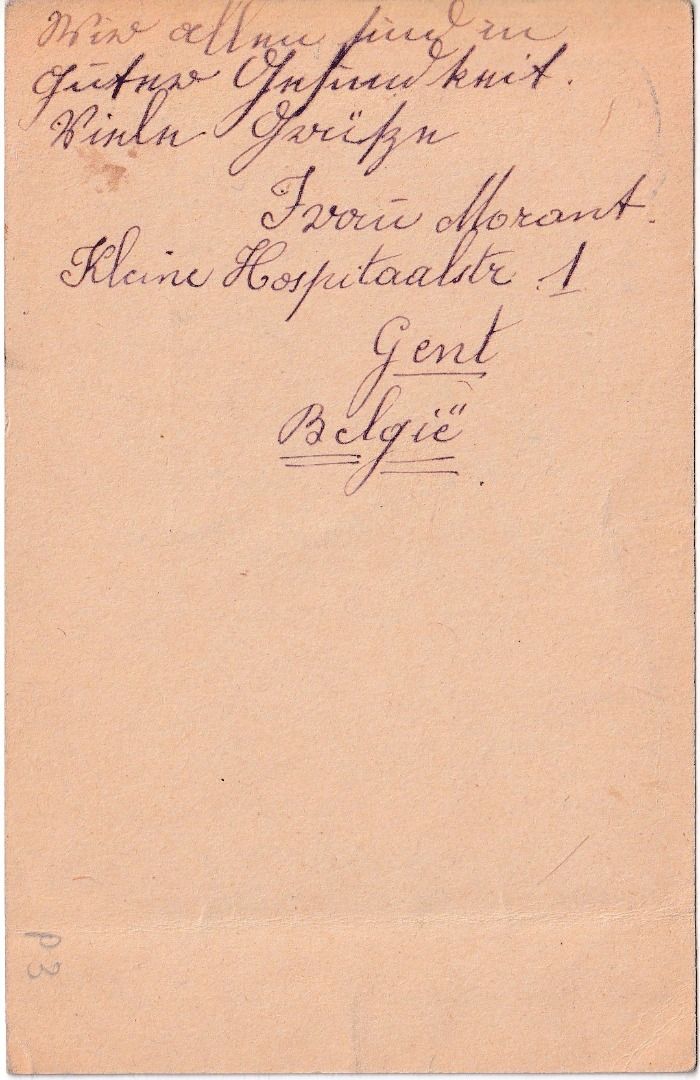 Wir allen sind in
guter Gesundheit.
Viele Grüße
Frau Morant.
Kleine Hospitaalstr 1
Gent
België
P3